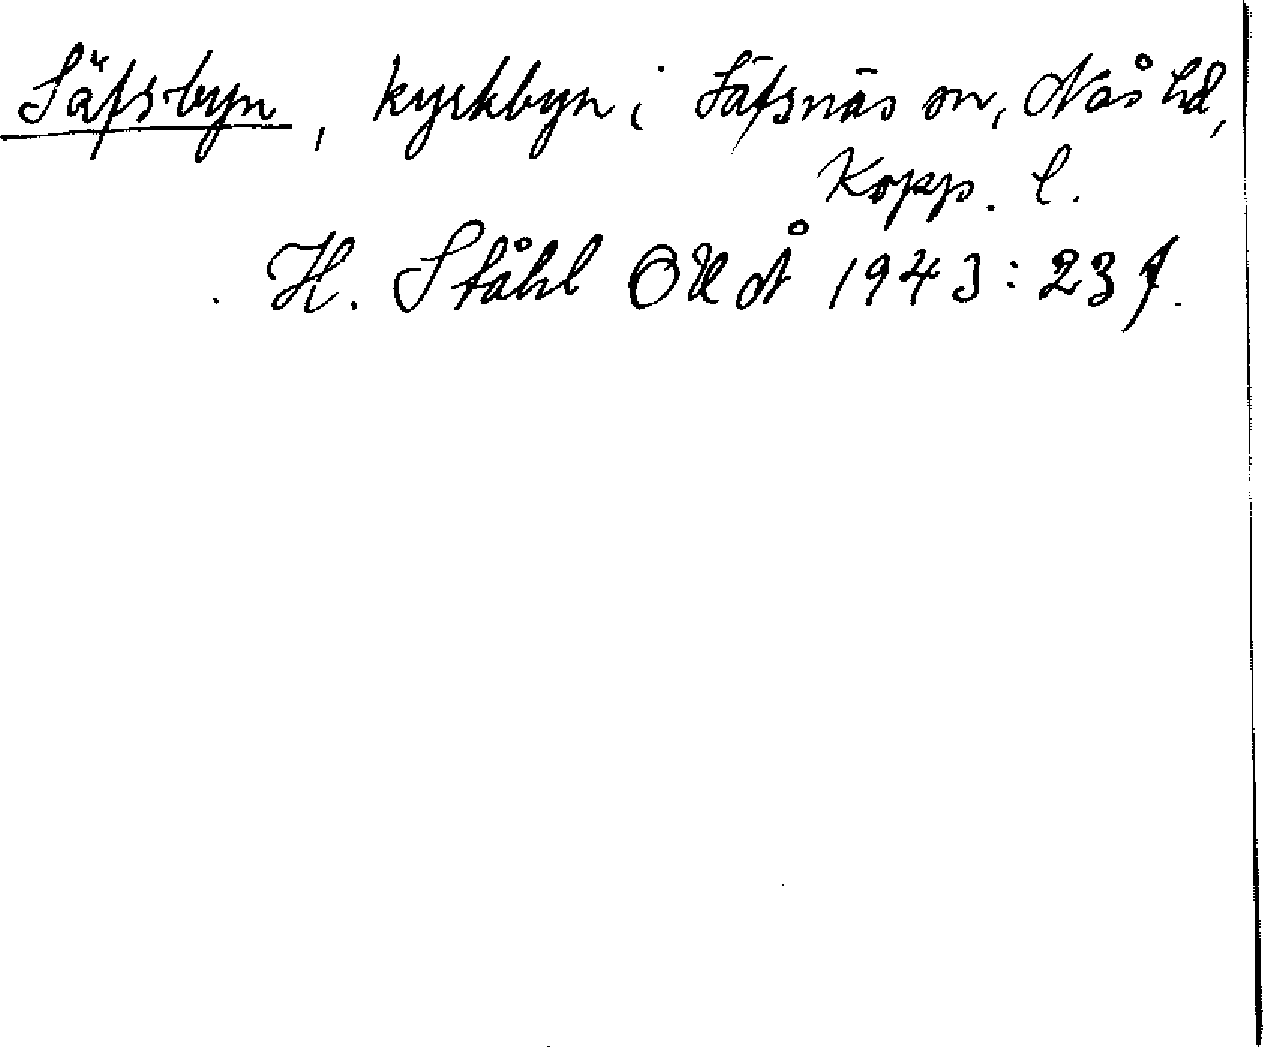 Säfsbyn, kyrkbyn i Säfsnäs sn, Nås hd,
Kopp. l.
H. Ståhl OUÅ 1943:23 f.